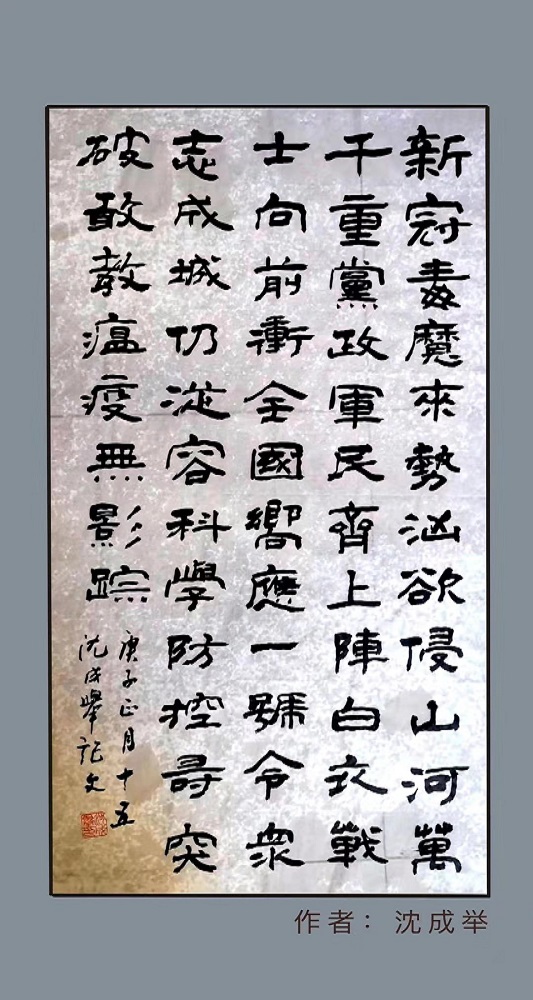 新冠毒魔來勢汹欲侵山河萬
千重黨政軍民齊上陣白衣戰
士向前衝全國嚮應一號令衆
志成城仍從容科學防控尋突
破敢教瘟疫無影踪
庚子正月十五
沈成舉記文
作者：沈成举